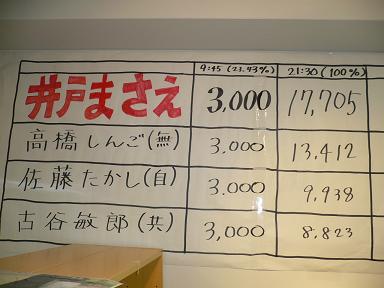 9:45 (23.43%) 21:30 (100%)
井戸まさえ 3,000 17,705
高橋しんご(無 3.000 13,412
佐藤たかし(自) 3.000 9,938
古谷敏郎(共) 3,000 8,823